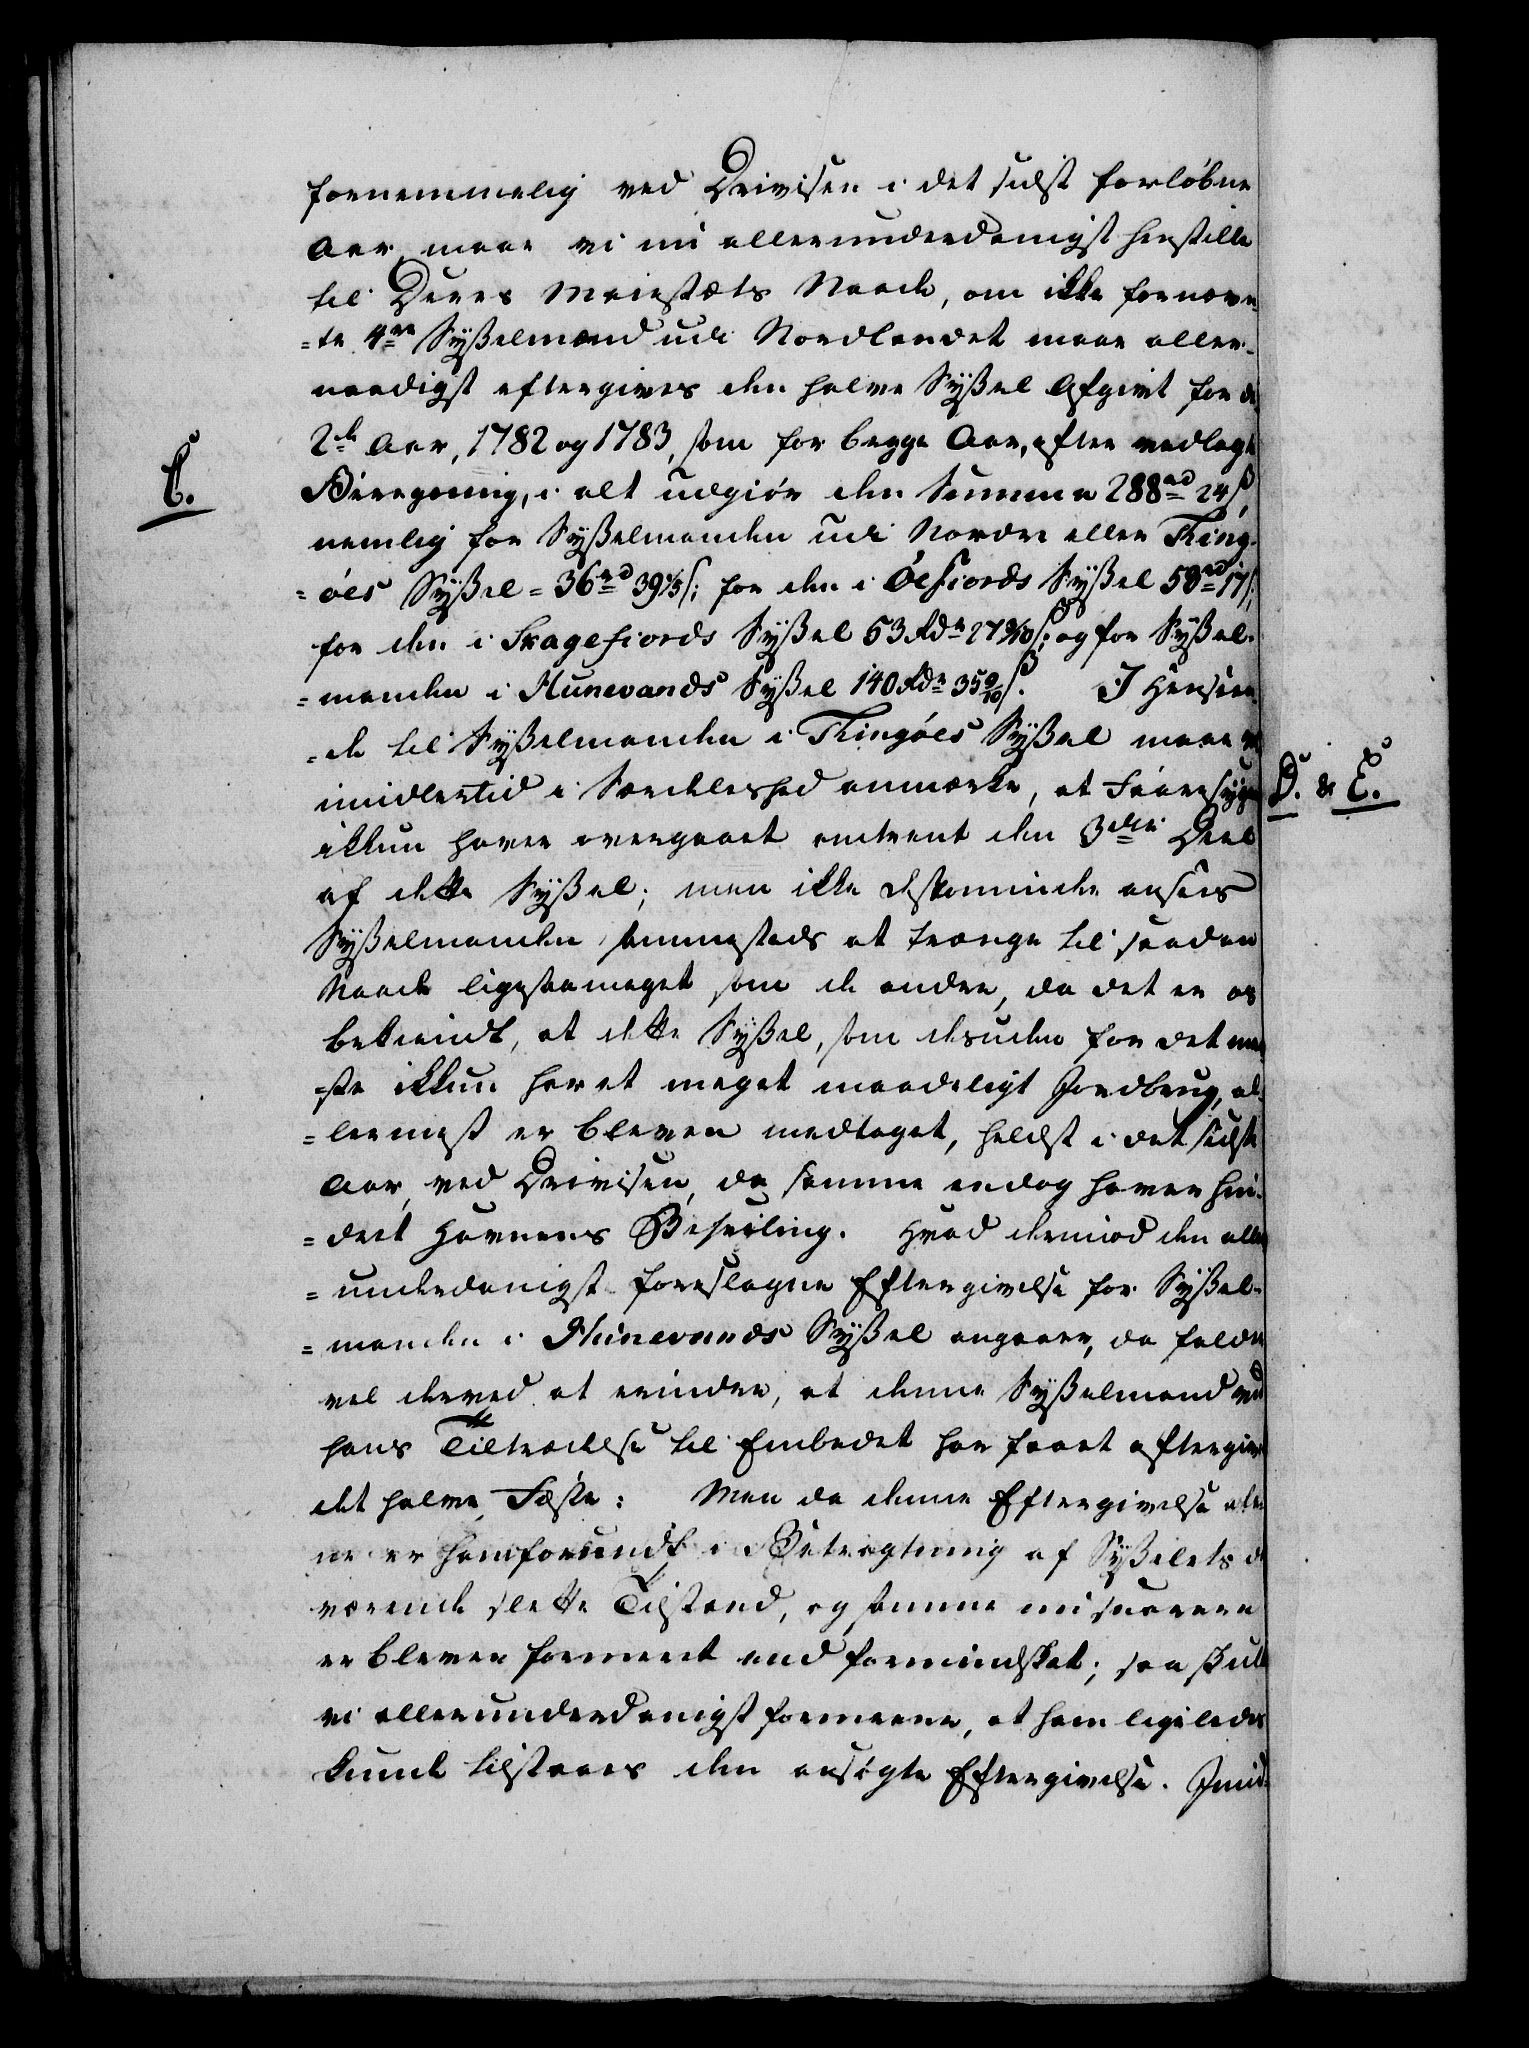 fornemmelig ved Driviisen i det sidst forløbne
Aar, maae vi nu allerunderdanigst henstille
til Deres Maiestæts Naade, om ikke fornævn-
=te 4re Sysselmænd udi Nordlandet maae aller-
naadigst eftergives den halve Syssel Afgivt for de
2de Aar, 1782 og 1783, som for begge Aar, efter vedlagte
C.
Beregning, i alt udgiør den Summa 288rd 24ß
nemlig for Sysselmanden udi Nordre eller Thing-
=øes Syssel = 36rd 39 1/5 ß; for den i Öefiords Syssel 58rd 17ß;
for den i Skagefiords Syssel 53 Rdr 27 9/10 ß; og for Syssel-
=manden i Hunevands Syssel 140 Rdr 35 9/10 ß. I Hensien-
=de til Sysselmanden i Thingøes Syssel maae vi
imidlertid i Særdeleshed anmærke, at Faaresygen
D. & E.
ikkun haver overgaaet omtrent den 3die Deel
af dette Syssel; men ikke destomindre ansees
Sysselmanden sammesteds at trænge til saadan
Naade ligesaameget som de andre, da det er os
bekiendt, at dette Syssel, som desuden for det mee
=ste ikkun har et meget maadeligt Jordbrug, al-
=lermest er bleven medtaget, heldst i det sidste
Aar, ved Driviisen, da samme endog haver hin-
=dret Havnens Beseiling. Hvad derimod den aller
=underdanigst foreslagne Eftergivelse for Syssel-
=manden i Hunevands Syssel angaaer, da falder
vel derved at erindre, at denne Sysselmand ved
hans Tiltrædelse til Embedet har faaet eftergivet
det halve Fæste: Men da denne Eftergivelse alee
ne er ham forundt i Betragtning af Sysselets da
værende slette Tilstand, og samme nu snarere
er bleven forværret end formindsket; saa skulde
vi allerunderdanigst formeene, at ham ligeledes
kunde tilstaaes den ansøgte Eftergivelse. Imid-